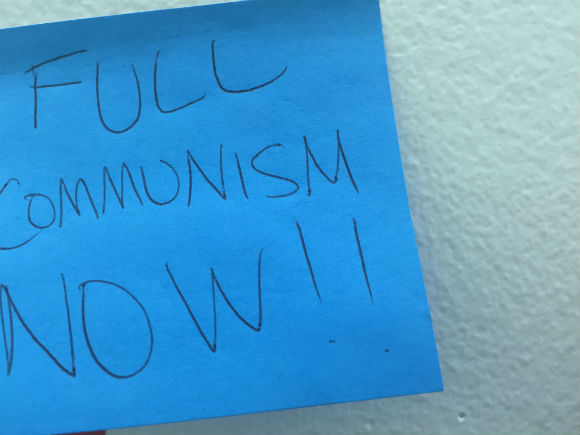 FULL
COMMUNISM
NOW!!